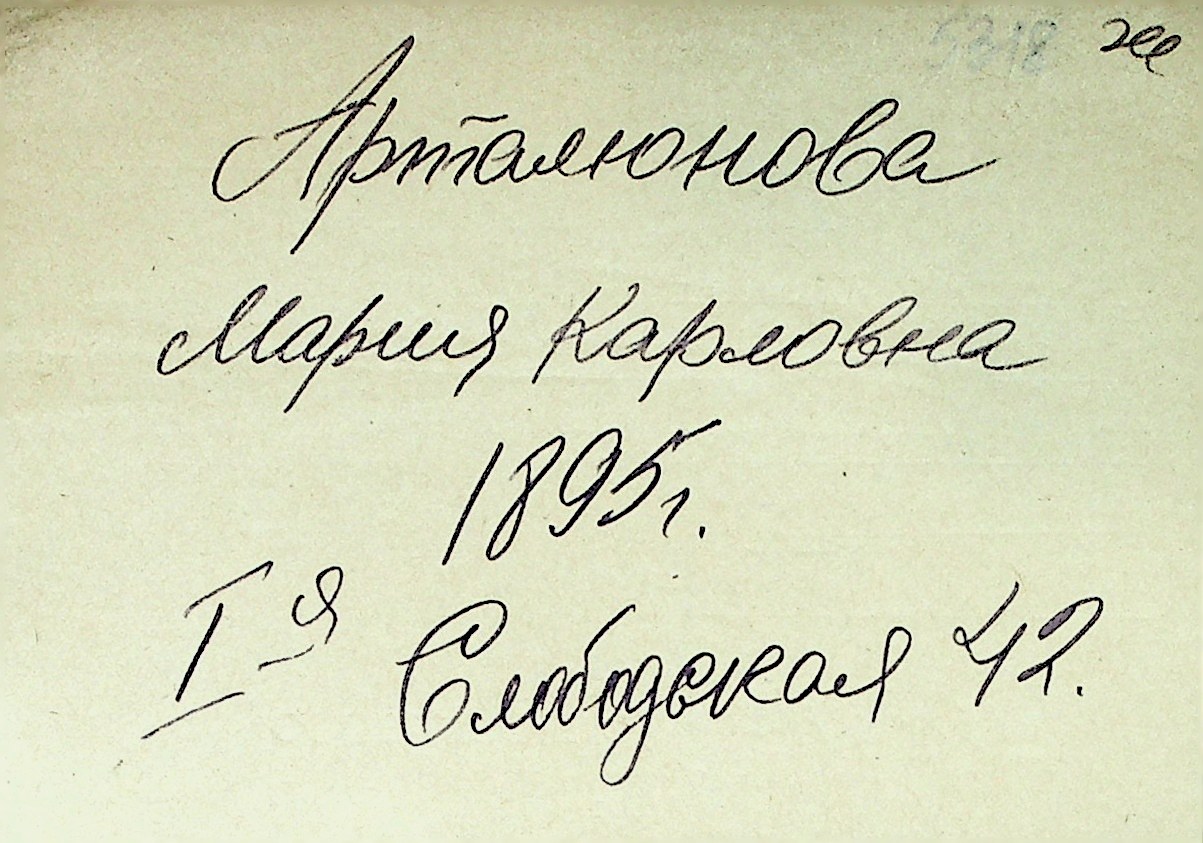 5318 же
Арталионова
Мария Карловна
1895 г.
I-я Слободская 42.